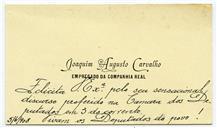 Joaquim Augusto Carvalho
EMPREGADO DA COMPANHIA REAL
Felicita V. Exª pelo seu sensacional
discurso proferido na Camara dos De-
putados em 3 do corrente
Vivam os Deputados do povo!